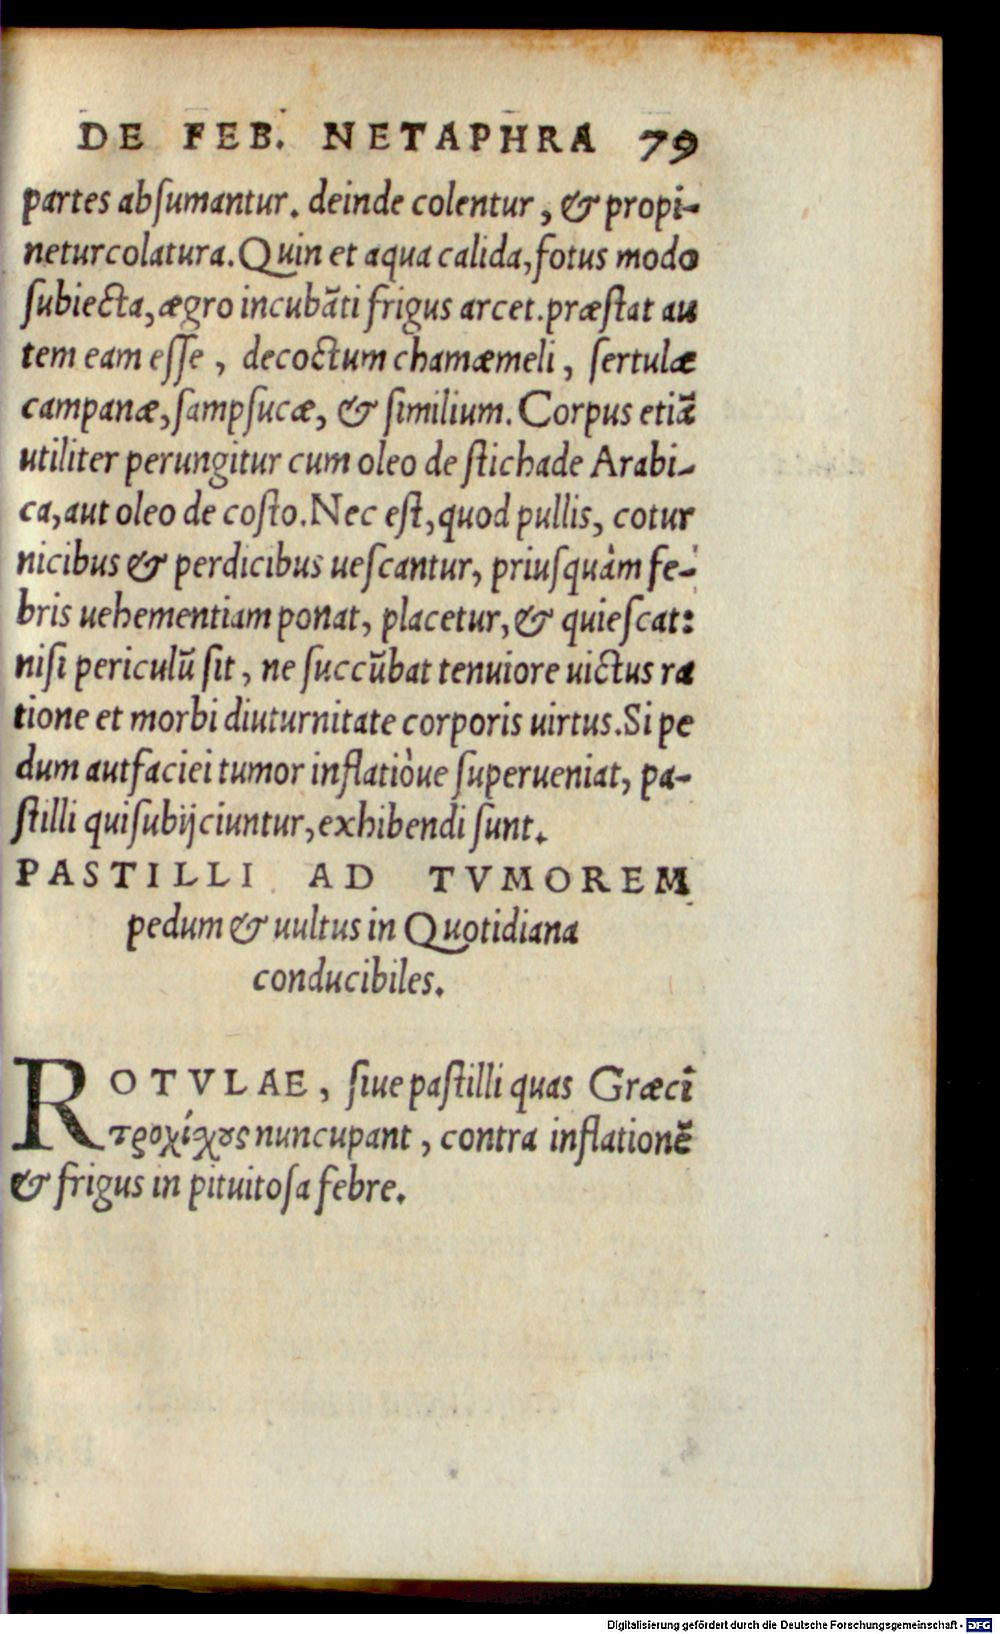 DE FEB. NETAPHRA 79
partes abſumantur. deinde colentur, & propi-
neturcolatura. Quin et aqua calida, fotus modo
ſubiecta, ægro incubāti frigus arcet. præſtat au
tem eam eſſe, decoctum chamæmeli, ſertulæ
campanæ, ſampſucæ, & ſimilium. Corpus etiā
utiliter perungitur cum oleo de ſtichade Arabi-
ca, aut oleo de coſto. Nec eſt, quod pullis, cotur
nicibus & perdicibus ueſcantur, priuſquàm fe-
bris uehementiam ponat, placetur, & quieſcat:
niſi periculū ſit, ne ſuccūbat tenuiore uictus ra
tione et morbi diuturnitate corporis uirtus. Si pe
dum autfaciei tumor inflatiòue ſuperueniat, pa-
ſtilli quiſubijciuntur, exhibendi ſunt.
PASTILLI AD TVMOREM
pedum & uultus in Quotidiana
conducibiles.
ROTVLAE, ſiue paſtilli quas Græci
τροχίχȣς nuncupant, contra inflationē
& frigus in pituitoſa febre.
Digitalisierung gefördert durch die Deutsche Forschungsgemeinschaft - DFG